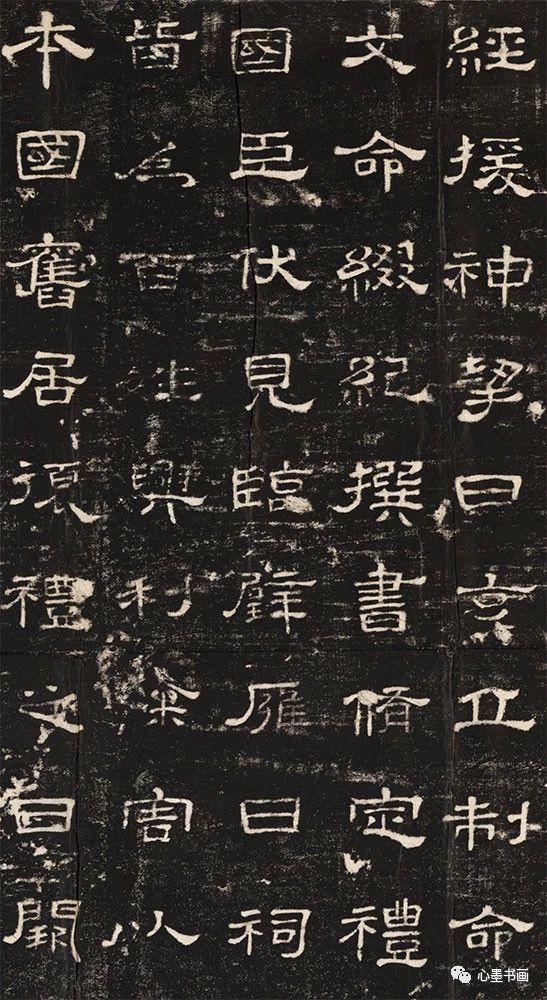 經援神挈曰玄丘制命
文命綴紀撰書脩定禮
國臣伏見臨辟雍日祠
皆為百姓興利除害以
本國舊居復禮之日闕
心墨书画